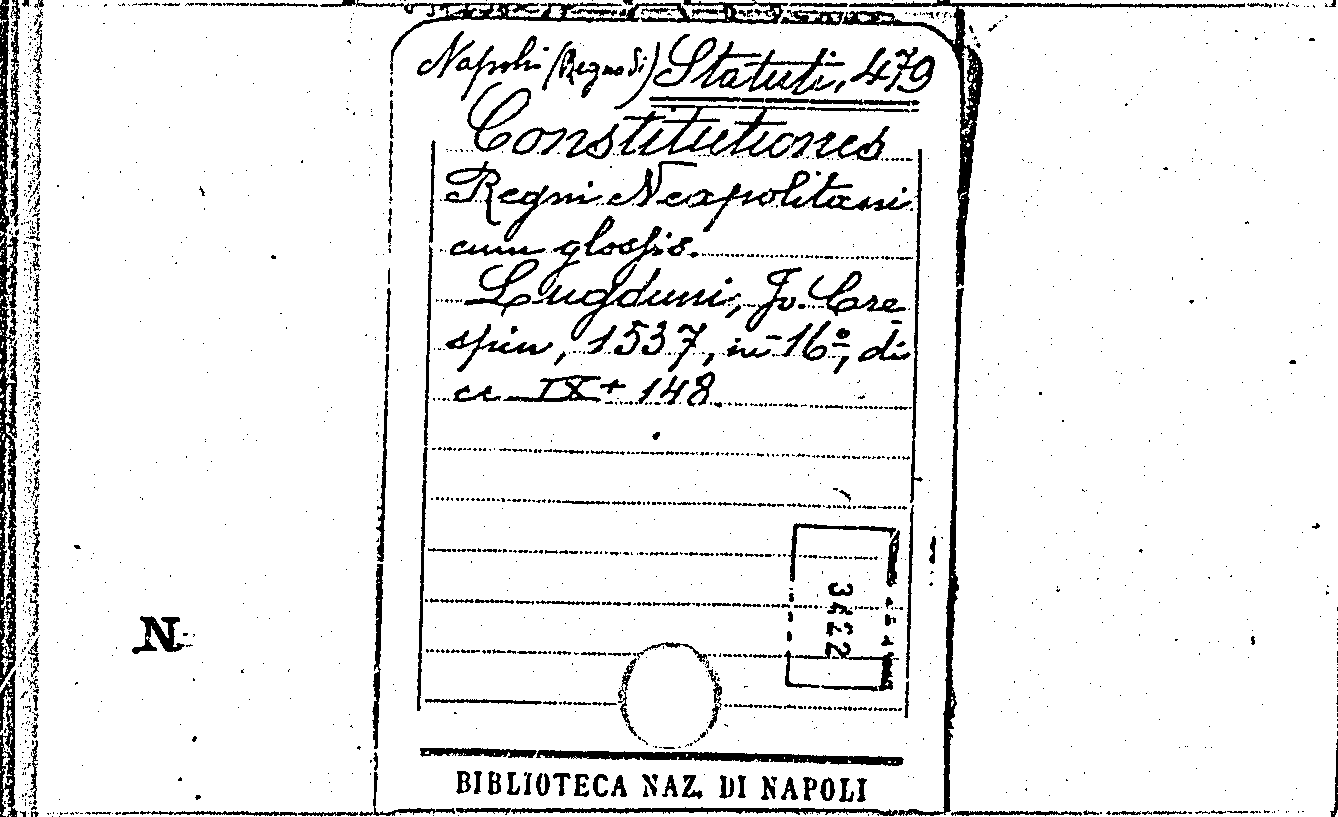 Napoli (Regno di) Statuti, 479
Constitutiones
Regni Neapolitani
cum glossis.
Lugduni, Jo. Cre
spin, 1537, in 16º, di
cc IX + 148
3422
N.
BIBLIOTECA NAZ. DI NAPOLI